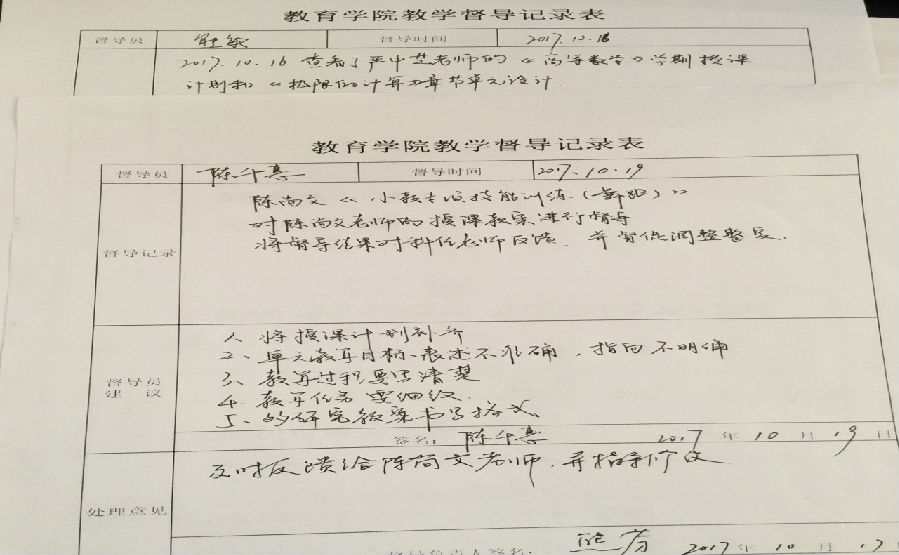 教育学院教学督导记录表
督导员 督导时间 2017.10.16
2017.10.16 查看了严中芝老师的《高等数学》学期授课
计划和《极限的计算》章节单元设计
教育学院教学督导记录表
督导员 陈午喜 督导时间 2017.10.19
陈尚文《小教专业技能训练(舞蹈)》
督导记录 对陈尚文老师的授课教案进行督导
将督导结果对科任老师反馈，并督促调整整改.
1、将授课计划补齐
2、单元教学目标、表述不准确，指向不明确
督导员建议 3、教学过程要写清楚
4、教学任务要细致.
5、的研究教案书写格式。
签名: 陈午喜 2017年10月19日
及时反馈给陈尚文老师，并指导修改
处理意见
督导负责人签名: 熊芳 2017年10月17